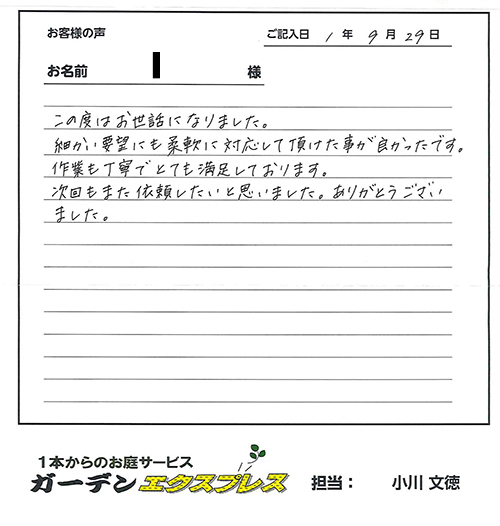 お客様の声
ご記入日 1 年 9 月 29 日
お名前 様
この度はお世話になりました。
細かい要望にも柔軟に対応して頂けた事が良かったです。
作業も丁寧でとても満足しております。
次回もまた依頼したいと思いました。ありがとうござい
ました。
1本からのお庭サービス
ガーデンエクスプレス 担当： 小川 文徳